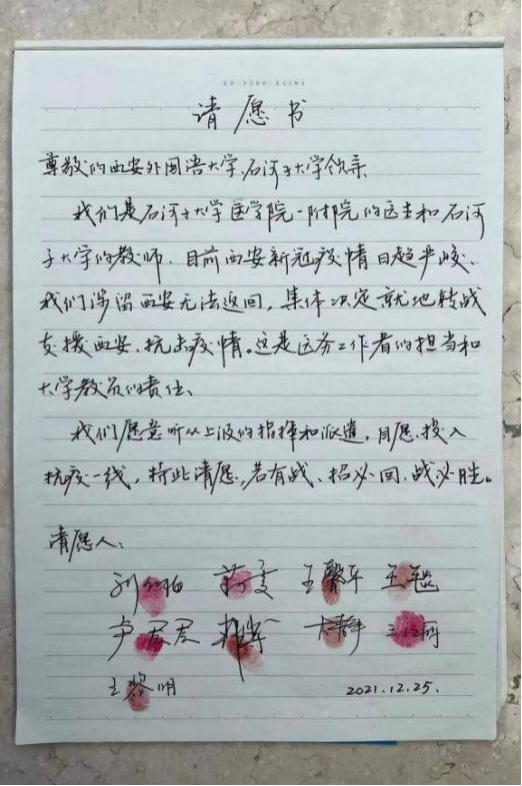 请愿书
尊敬的西安外国语大学、石河子大学领导:
我们是石河子大学医学院一附院的医生和石河
子大学的教师。目前西安新冠疫情日趋严峻、
我们滞留西安无法返回,集体决定就地转战
支援西安、抗击疫情。这是医务工作者的担当和
大学教员的责任、
我们愿意听从上级的指挥和派遣,自愿投入
抗疫一线,特此请愿,若有战、招必回、战必胜。
请愿人:
王黎明 2021.12.25.